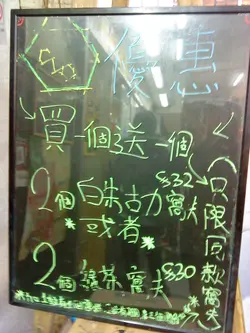 優惠
買一個送一個
2個白朱古力窩夫 $32
*或者*
2個綠茶窩夫 $30
只限同款窩夫